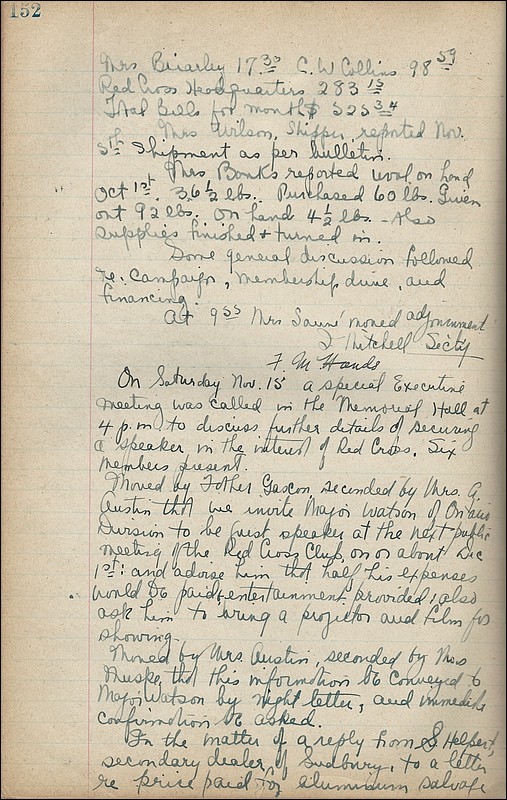 152
Mrs. Briarley 17.30 C.W. Collins 98 59
Red Cross Headquarters 283 15
Total Bills for month $ 525 34
Mrs Wilson, Shipper, reported Nov.
5th Shipment as per bulletin.
Mrs Banks reported wool on hand
Oct 1st. 36 1/2 lbs. Purchased 60 lbs. Given
out 92 lbs. On hand 4 1/2 lbs. - Also
supplies finished & turned in.
Some general discussion followed
re. campaign, membership drive, and
financing.
At 9 55 Mrs moved adjournment
Mitchell Secty
F. M. Hands
On Saturday Nov. 15 a special Executive
meeting was called in the Memorial Hall at
4 p.m. to discuss further details of securing
a speaker in the interest of Red Cross. Six
members present.
Moved by Father Gascon, seconded by Mrs. G.
Austin that we invite Major Watson of Ontario
Division to be guest speaker at the next public
meeting of the Red Cross Club, on or about Dec
1st: and advise him that half his expenses
would be paid, & entertainment provided; also
ask him to bring a projector and film for
showing.
Moved by Mrs. Austin, seconded by Mrs
that this information be conveyed to
Major Watson by night letter, and immediate
confirmation be asked.
In the matter of a reply from
secondary dealer of Sudbury, to a letter
re price paid for aluminum salvage